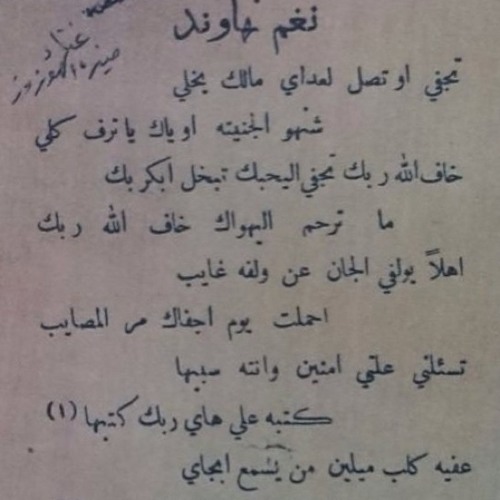 نغم نهاوند
غناء
منيرة الهوزوز
تجفي او تصل لعداي مالك يخلي
شنهو الجنيته اوياك يا ترف كلي
خاف الله ربك تجفي اليحبك تبخل ابكربك
ما ترحم اليهواك خاف الله ربك
اهلاً يولفي الجان عن ولفه غايب
احملت يوم اجفاك مر المصايب
تسئلني علتي امنين وانته سببها
كتبه علي هاي ربك كتبها (١)
عفيه كلب ميلين من يسمع ابجاي